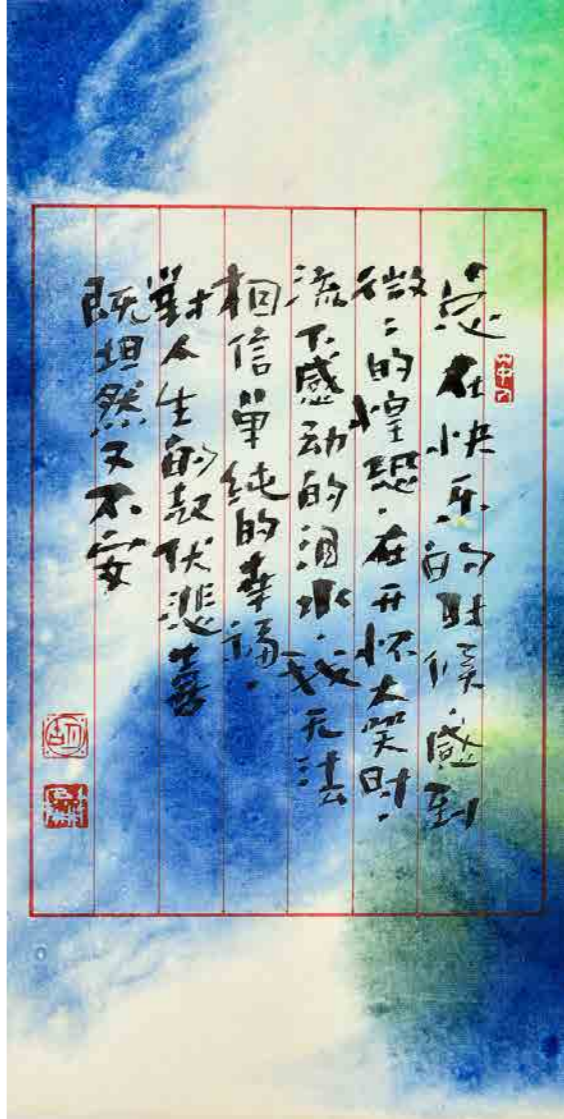 总在快乐的时候，感到
微微的惶恐，在开怀大笑时，
流下感动的泪水，我无法
相信單纯的幸福，
對人生的起伏悲喜
既坦然又不安